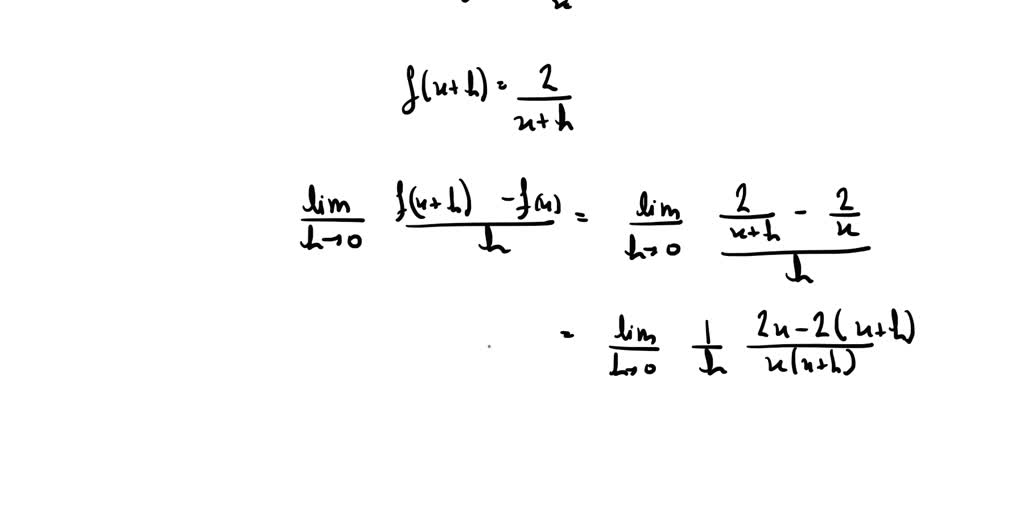 f(x+h) = 2/(x+h)
lim h→0 (f(x+h) - f(x))/h = lim h→0 (2/(x+h) - 2/x)/h
= lim h→0 1/h (2x-2(x+h))/(x(x+h))